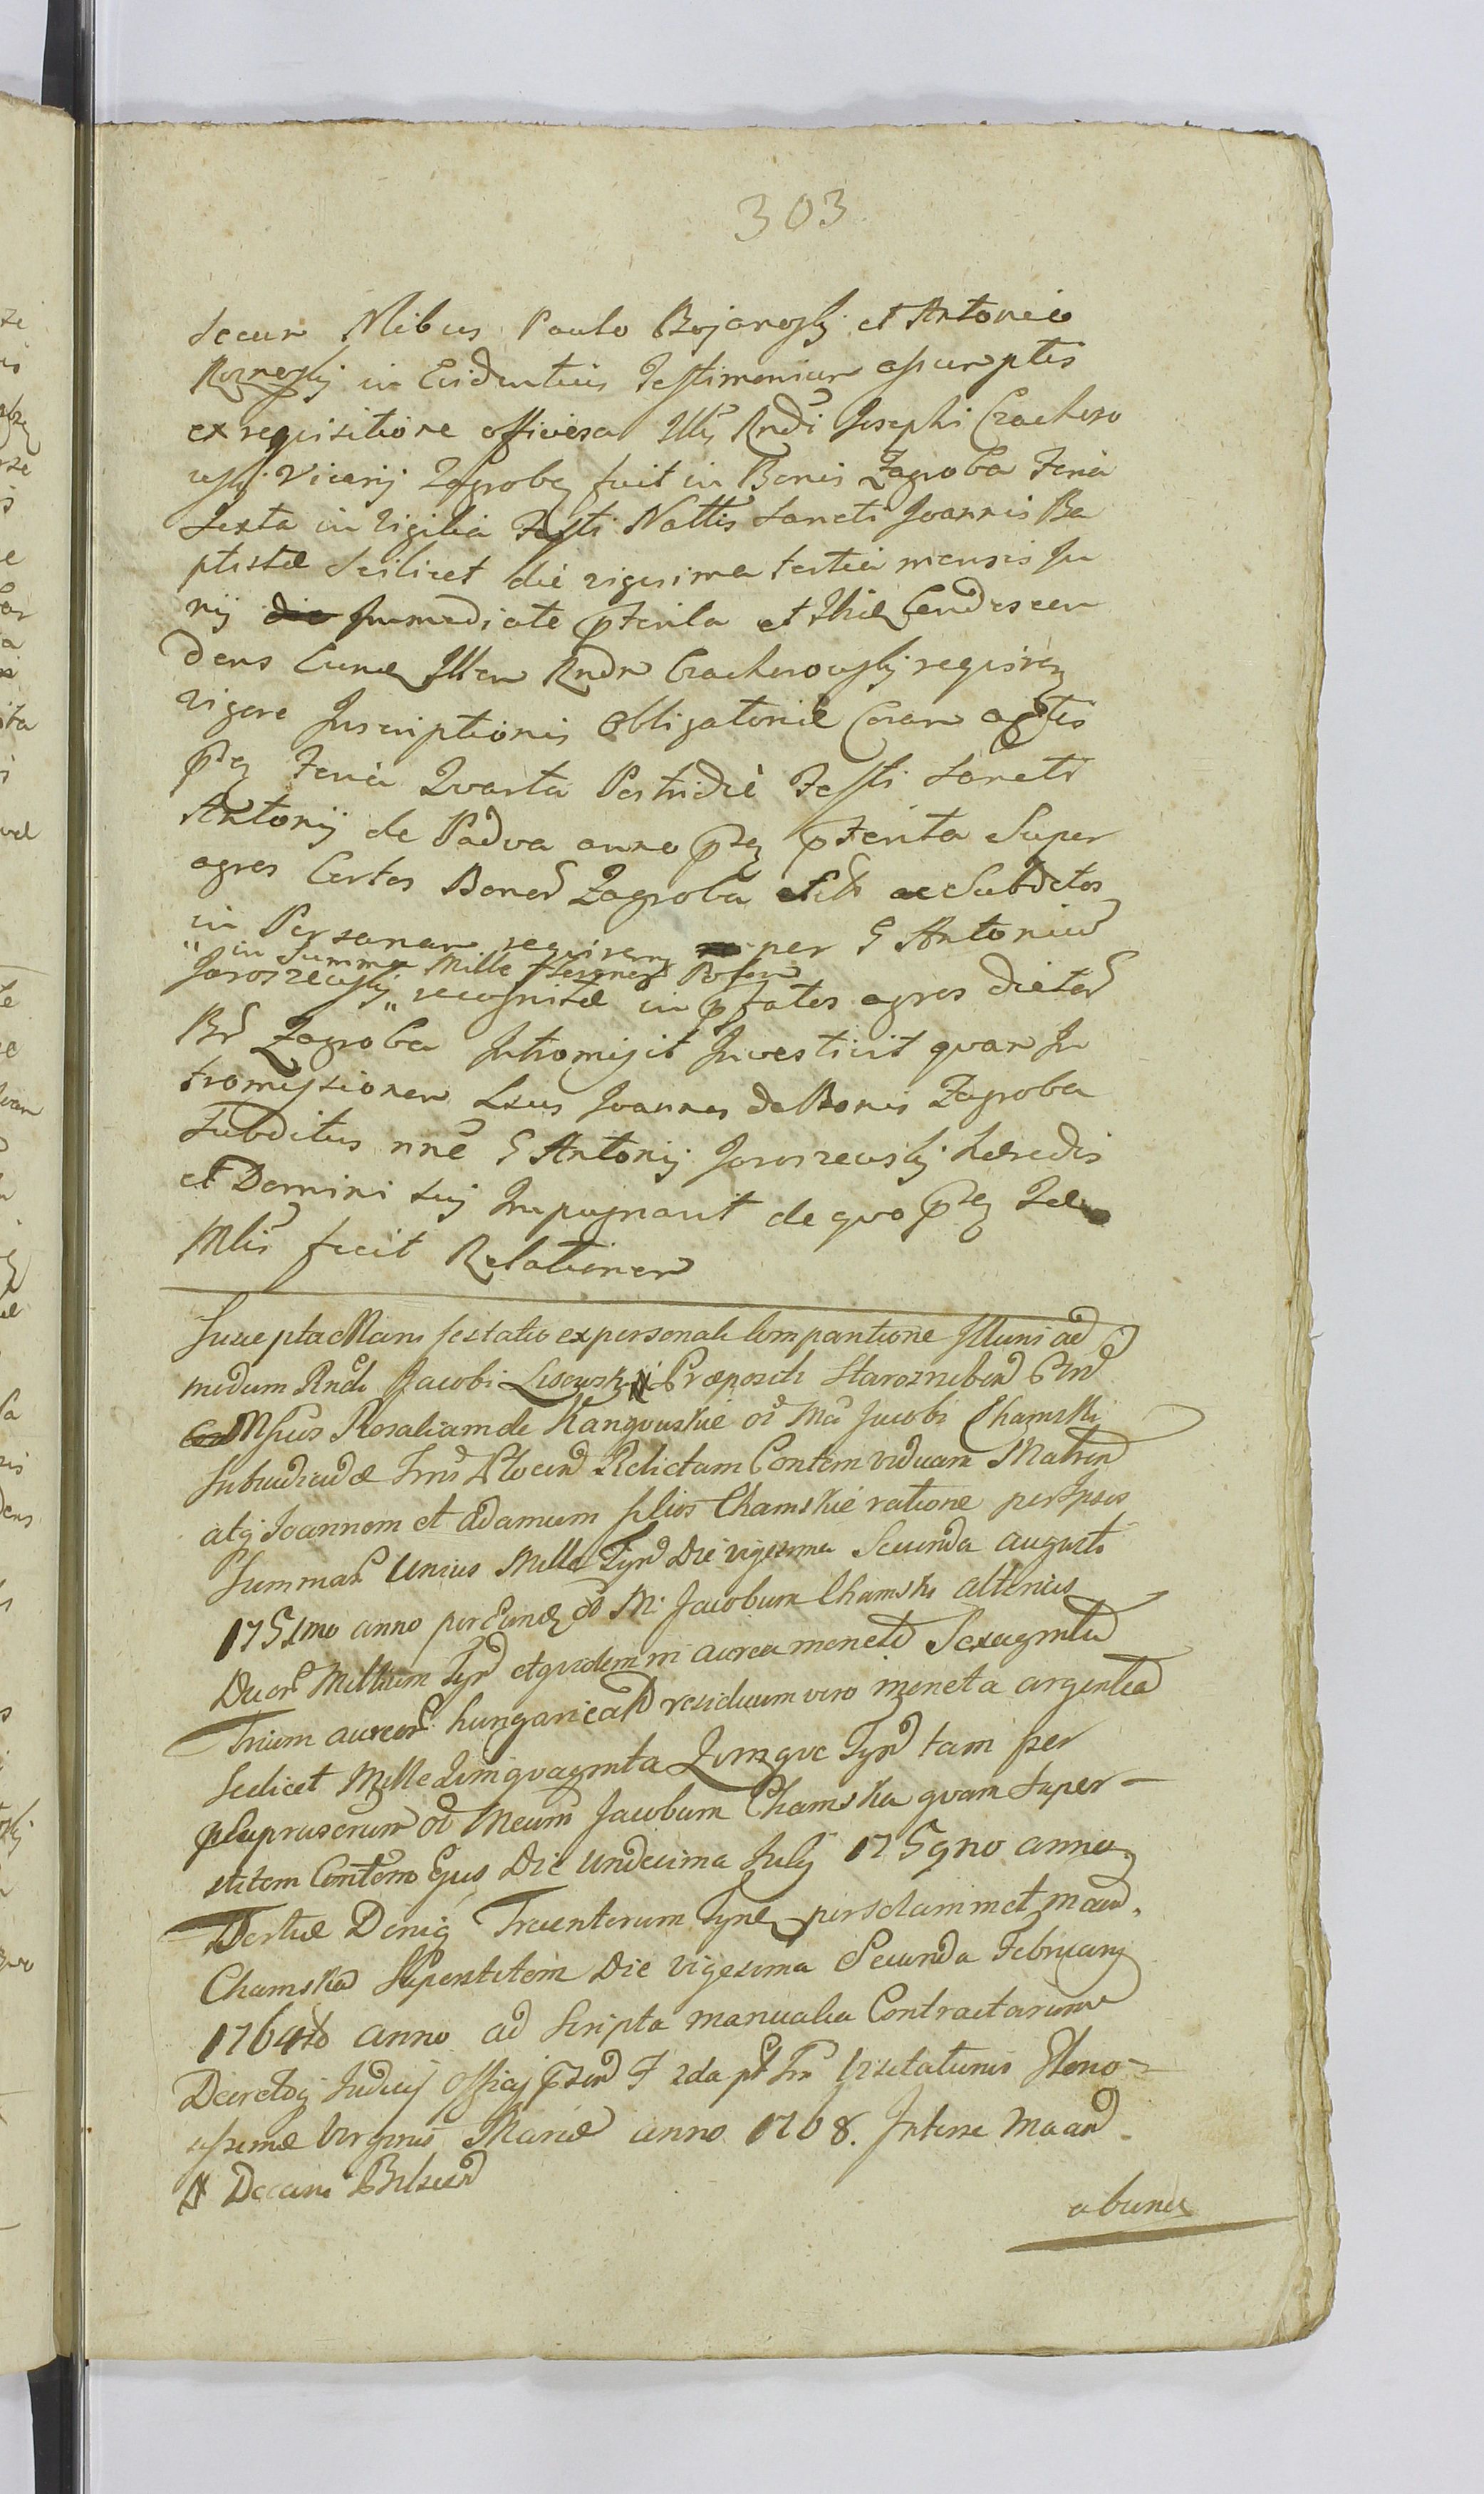 303
secum Nlibus Paulo Bojanosky et Antonio
Roznosky in Evidentius Testimonium assumptis
ex requisitione officiosa Illis Rndi Josephi Czachoro
wsky Vicarij Zagroben fuit in Bonis Zagroba Feria
Sexta in Vigilia Festi Nattis Sancti Joannis Ba
ptistæ Scilicet die vigesima tertia mensis Ju
nij die Immediate pterita et Condescen
dens Eundem Illem Rndm Czachorowsky requiren
vigore Inscriptionis Obligatoriæ Coram actis
pten Feria Quarta Postridie Festi Sancti
Antonij de Padva anno pten pterita Super
agros Certos Bonor Zagroba ac Subditos
in Personam requiren per G Antonium
"in Summa Mille florenor Polon
Jaroszewsky" recognitæ in pfatos agros dictor
Br Zagroba Intromisit Investivit quam In
tromissionem Lsus Joannes de Bonis Zagroba
Subditus nne G Antonij Jaroszewsky hæredis
et Domini sui Impugnavit de quo pten
Mlis fecit Relationem
Suscepta Manifestatio ex personali Comparitione Illuni ad
modum Rndi Jacobi Lisowski Præpositi Starozreben
Msus Rosaliam de Kangowskie oi Mci Jacobi Chamski
Subiudicis Trris Plocen Relictam Contem viduam Matrem
atq Joannem et Adamum filios Chamskie ratione per Ipsos
Summar Unius Mille Tyn Die vigesima Secunda augusti
1751mo anno per Eund oi M. Jacobum Chamski alterius
Duor Millium Tyn et quidem in aurea moneta Sexaginta
Trium aureor hungaricals residuum vero moneta argentea
Scilicet Mille Quinquaginta Quinque Tyn tam per
oi Mcum Jacobum Chamski quam Super-
stitem Contem Ejus Die undecima July 1759no anno
Tertiæ Deniq Trecentorum Tyn per solammet
Chamska Superstitem Die vigesima Secunda February
1764to anno ad Scripta manualia Contractarum
Decretoq Judicij Officij F 2da pt Fm Visitationis Glorio-
sissimæ Virginis Mariæ anno 1768. Interse
Decani Bilscen
abunde